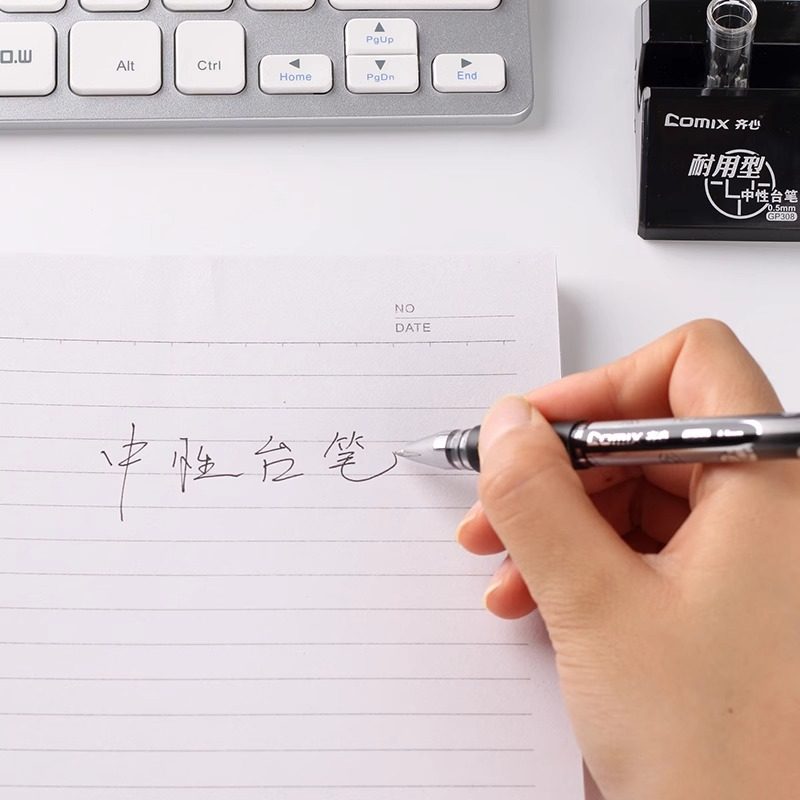 o.w
Alt
Ctrl
Home
PgUp
PgDn
End
Comix 齐心
耐用型
中性台笔
0.5mm
GP308
NO
DATE
中性台笔
Comix 齐心